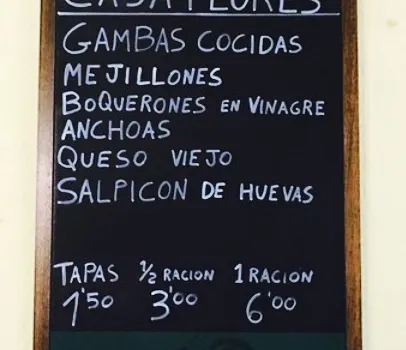 CASA FLORES
GAMBAS COCIDAS
MEJILLONES
BOQUERONES EN VINAGRE
ANCHOAS
QUESO VIEJO
SALPICON DE HUEVAS
TAPAS ½ RACION 1 RACION
1'50 3'00 6'00